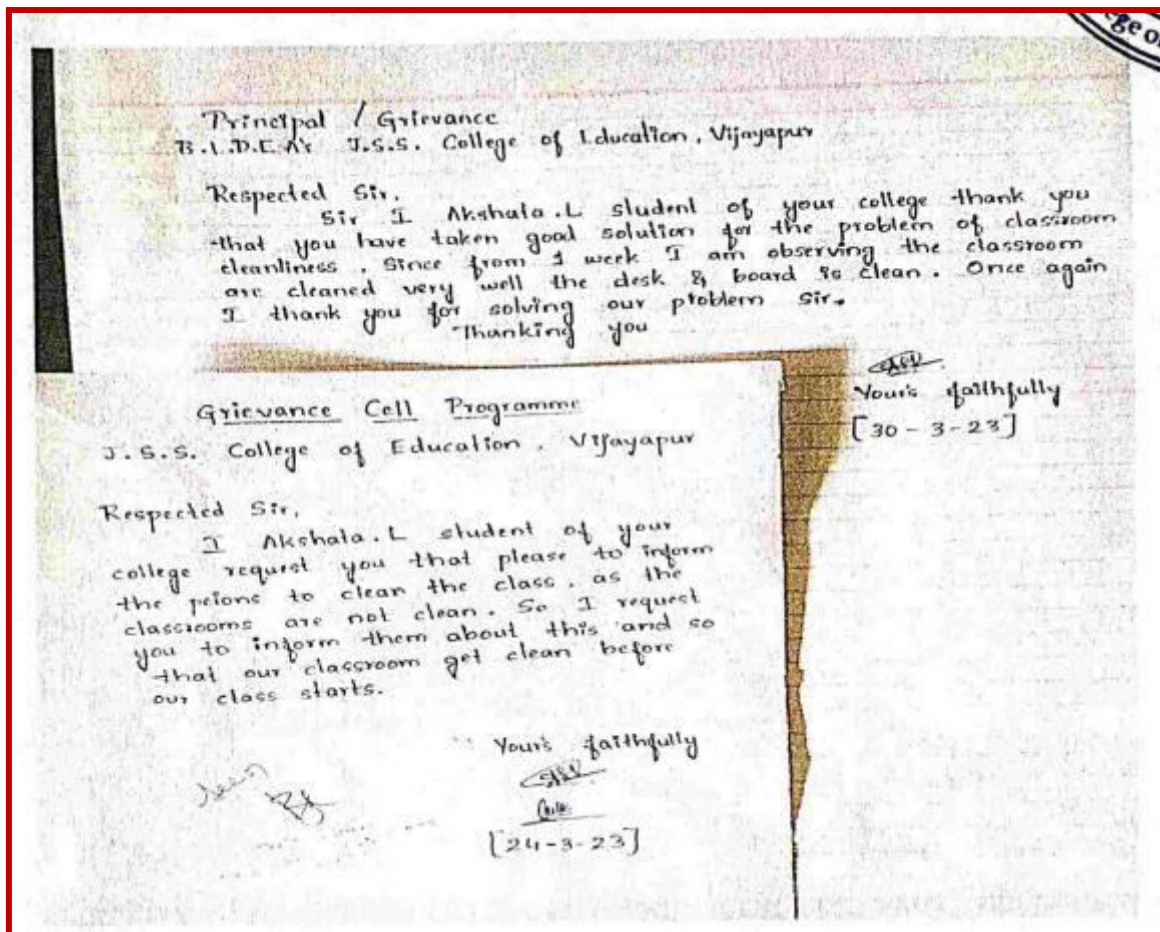 ge of
Principal / Grievance
B.L.D.E.A's J.S.S. College of Education, Vijayapur
Respected Sir,
Sir I Akshala.L student of your college thank you
that you have taken good solution for the problem of classroom
cleanliness. Since from 1 week I am observing the classroom
are cleaned very well the desk & board is clean. Once again
I thank you for solving our problem Sir.
Thanking you
Your's faithfully
[30-3-23]
Grievance Cell Programme
J.S.S. College of Education, Vijayapur
Respected Sir,
I Akshala.L student of your
college request you that please to inform
the peions to clean the class, as the
classrooms are not clean. So I request
you to inform them about this and so
that our classroom get clean before
our class starts.
Your's faithfully
[24-3-23]